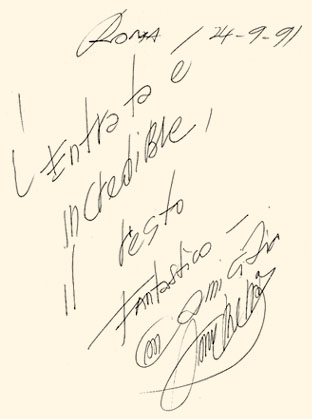 Roma / 24-9-91
L'Entrata è
incredibile,
il resto
Fantastico -
con amicizia